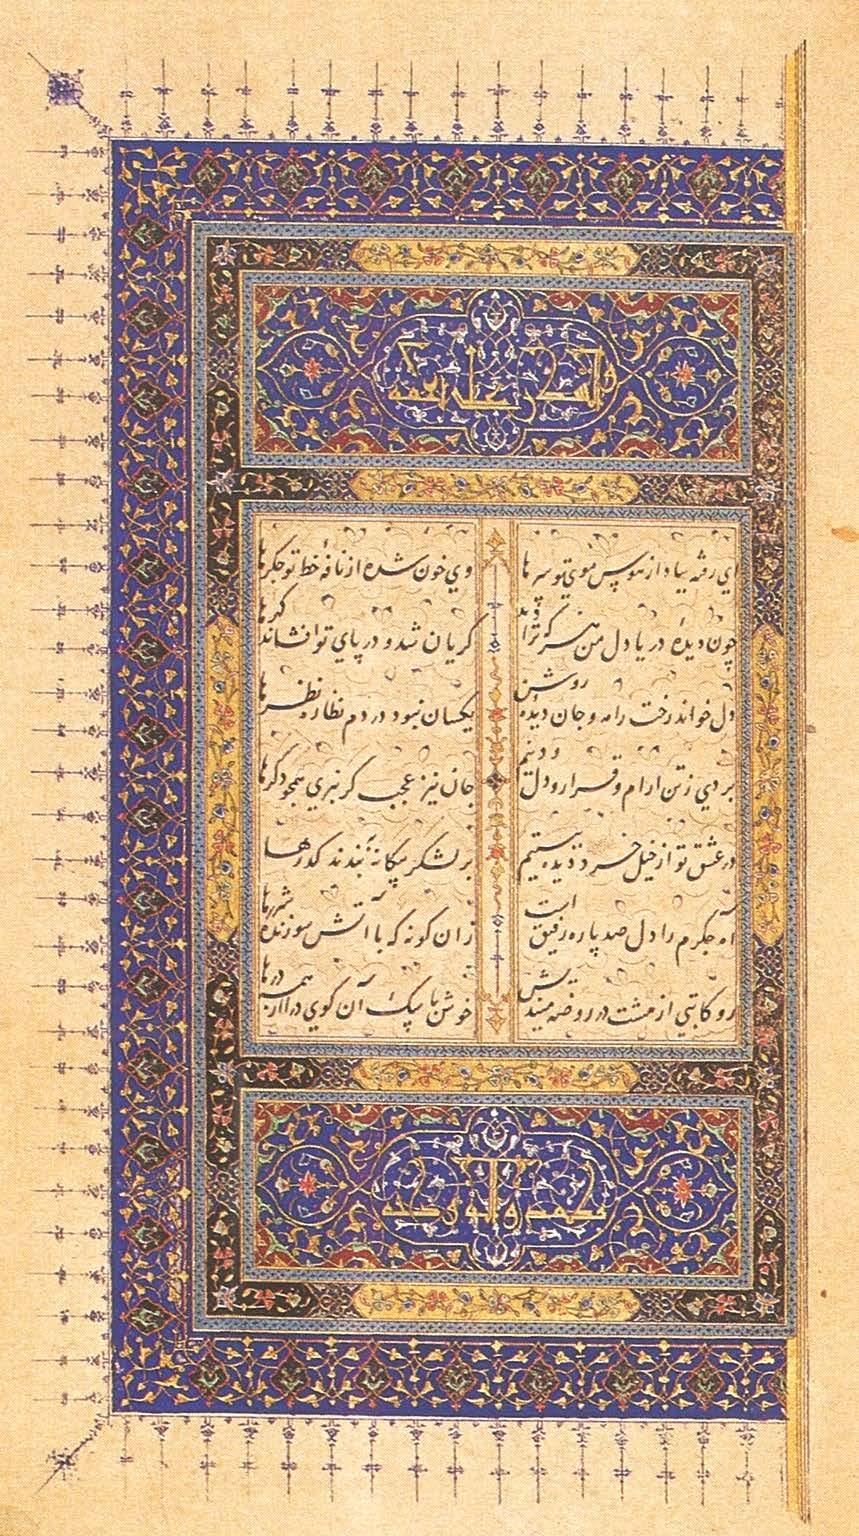 ای رفته بباد از هوس موی تو سرها
وی خون شده از نافهٔ خط تو جکرها
چون دیدهٔ دریا دل من هر که ترا دید
کریان شد و در پای تو افشاند کهرها
دل خواند رخت را مه و جان دیدهٔ روشن
یکسان نبود در دم نظاره نظرها
بردی ز تن ارام و قرار و دل و دینم
جان نیز عجب کر نبری همچو دکرها
در عشق تو از خیل خرد دیده ببستیم
بر لشکر بیکانه ببندند کذرها
آه جکرم را دل صد پاره رفیق است
زان کونه که با آتش سوزنده شررها
رو کاتبی از هشت در روضه میندیش
خوش با سک آن کوی درآ از همه درها
محمد و آله و صحبه